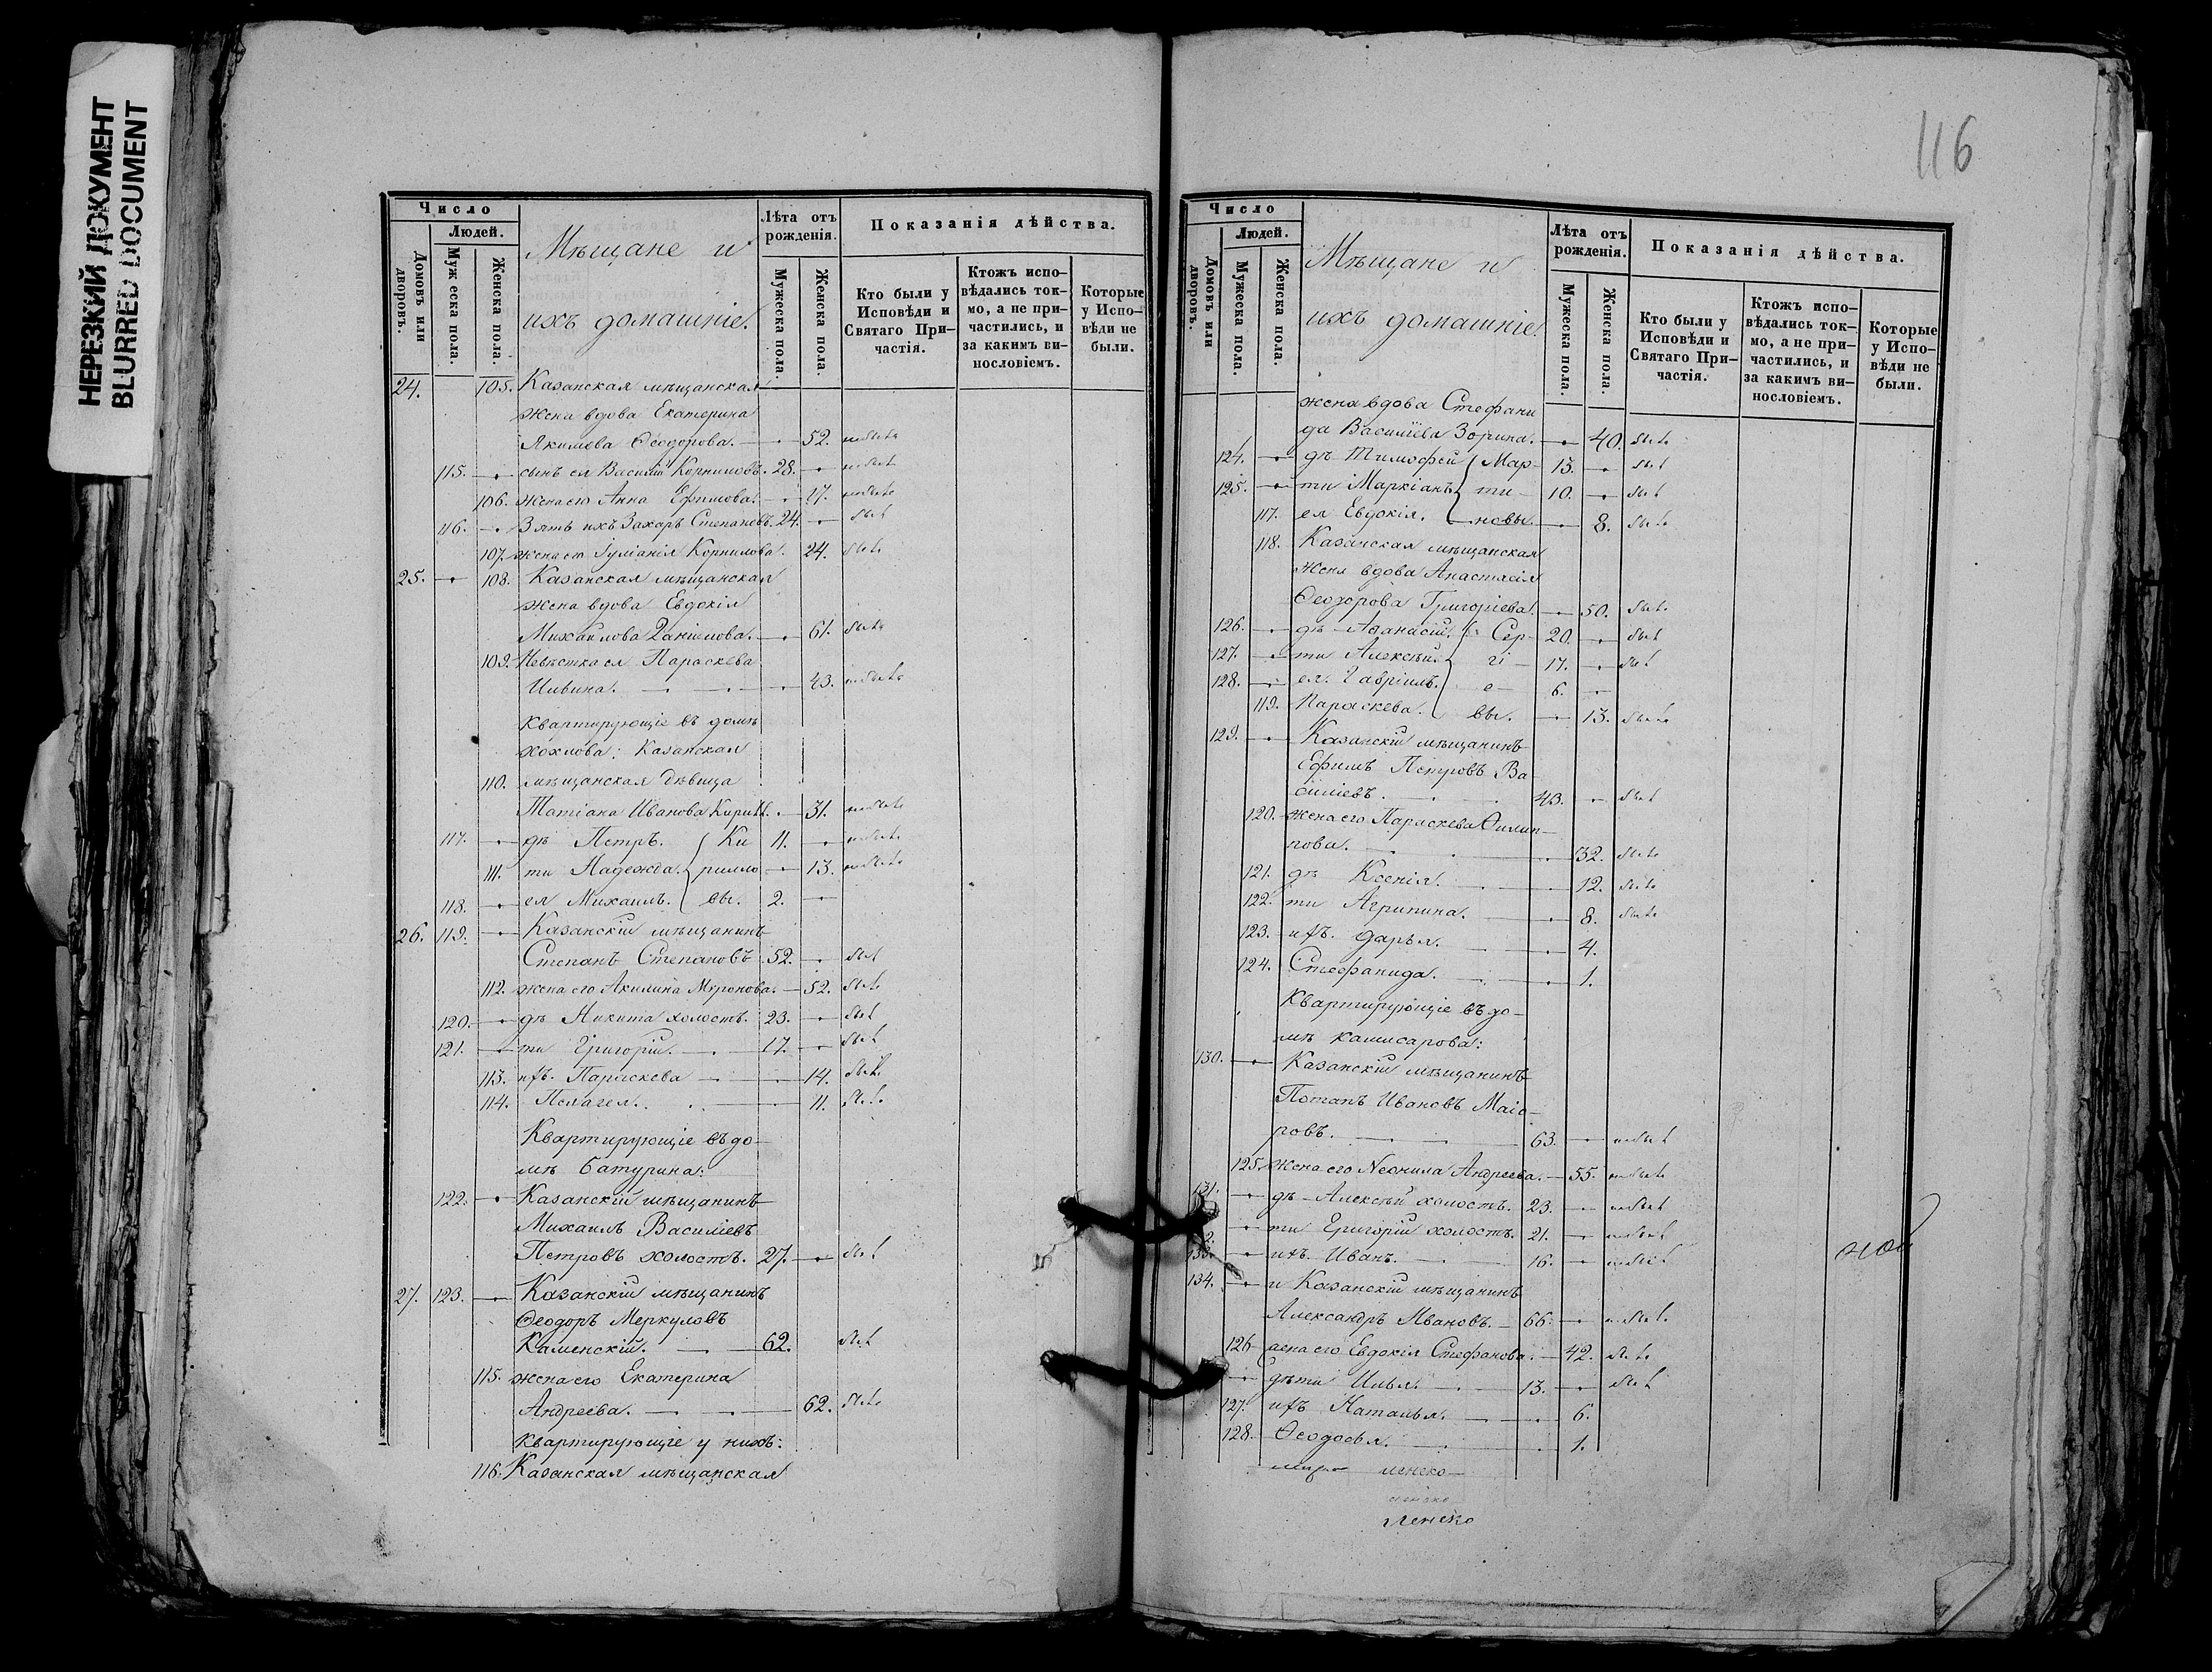 НЕРЕЗКИЙ ДОКУМЕНТ
BLURRED DOCUMENT
Число
Людей.
Домовъ или дворовъ.
Мужеска пола.
Женска пола.
Мѣщане и
ихъ домашніе.
Лѣта отъ рожденія.
Мужеска пола.
Женска пола.
Показанія дѣйства.
Кто были у Исповѣди и Святаго При-частія.
Ктожъ испо-вѣдались ток-мо, а не при-частились, и за какимъ ви-нословіемъ.
Которые у Испо-вѣди не были.
24. 105. Казанская мѣщанская
жена вдова Екатерина
Якимова Ѳеодорова. 52.
115. сынъ ея Василій Корниловъ. 28.
106. жена его Анна Ефимова. 17.
116. Зять ихъ Захаръ Степановъ. 24. былъ
107. жена его Іуліанія Корнилова. 24. была
25. 108. Казанская мѣщанская
жена вдова Евдокія
Михайлова Даніилова. 61. была
109. Невѣстка ея Параскева
43.
Квартирующіе въ домѣ
Хохлова: Казанская
110. мѣщанская дѣвица
Татіана Иванова 31.
117. дѣ Петръ. Ки 11.
111. ти Надежда. рилло 13.
118. ея Михаилъ. вы. 2.
26. 119. Казанскій мѣщанинъ
Степанъ Степановъ 52. былъ
112. жена его Акилина Миронова. 52. была
120. дѣ Никита холостъ. 23. былъ
121. ти Григорій. 17. былъ
113. ихъ. Параскева 14. была
114. Пелагея. 11. была
Квартирующіе въ до-
мѣ Батурина:
122. Казанскій мѣщанинъ
Михаилъ Василіевъ
Петровъ холостъ. 27. былъ
27. 123. Казанскій мѣщанинъ
Ѳеодоръ Меркуловъ
Каменскій. 62. былъ
115. жена его Екатерина
Андреева. 62. была
Квартирующіе у нихъ:
116. Казанская мѣщанская
116
Число
Людей.
Домовъ или дворовъ.
Мужеска пола.
Женска пола.
Мѣщане и
ихъ домашніе.
Лѣта отъ рожденія.
Мужеска пола.
Женска пола.
Показанія дѣйства.
Кто были у Исповѣди и Святаго При-частія.
Ктожъ испо-вѣдались ток-мо, а не при-частились, и за какимъ ви-нословіемъ.
Которые у Испо-вѣди не были.
жена вдова Стефани
да Василіева Зорина. 40. была
124. дѣ Тимоѳей Мар- 13. былъ
125. ти Маркіанъ ти- 10. былъ
117. ея Евдокія. новы. 8. была
118. Казанская мѣщанская
жена вдова Анастасія
Ѳеодорова Григоріева. 50. была
126. дѣ Аѳанасій. Сер- 20. былъ
127. ти Алексѣй. гі- 17. былъ
128. ея. Гавріилъ. е- 6.
119. Параскева. вы. 13. была
129. Казанскій мѣщанинъ
Ефимъ Петровъ Ва-
силіевъ. 43. былъ
120. жена его Параскева Филип-
пова. 32. была
121. дѣ Ксенія. 12. была
122. ти Агрипина. 8. была
123. ихъ. Дарья. 4.
124. Стефанида. 1.
Квартирующіе въ до-
мѣ Камисарова:
130. Казанскій мѣщанинъ
Потапъ Ивановъ Маіо-
ровъ. 63.
125. жена его Неонила Андреева. 55.
131. дѣ Алексѣй холостъ. 23.
ти Григорій холостъ. 21.
133. ихъ. Иванъ. 16.
134. и Казанскій мѣщанинъ
Александръ Ивановъ. 66.
126 Евдокія Стефанова. 42. была
дѣти Илья. 13. былъ
127. ихъ Наталья. 6.
128. Ѳеодосья. 1.